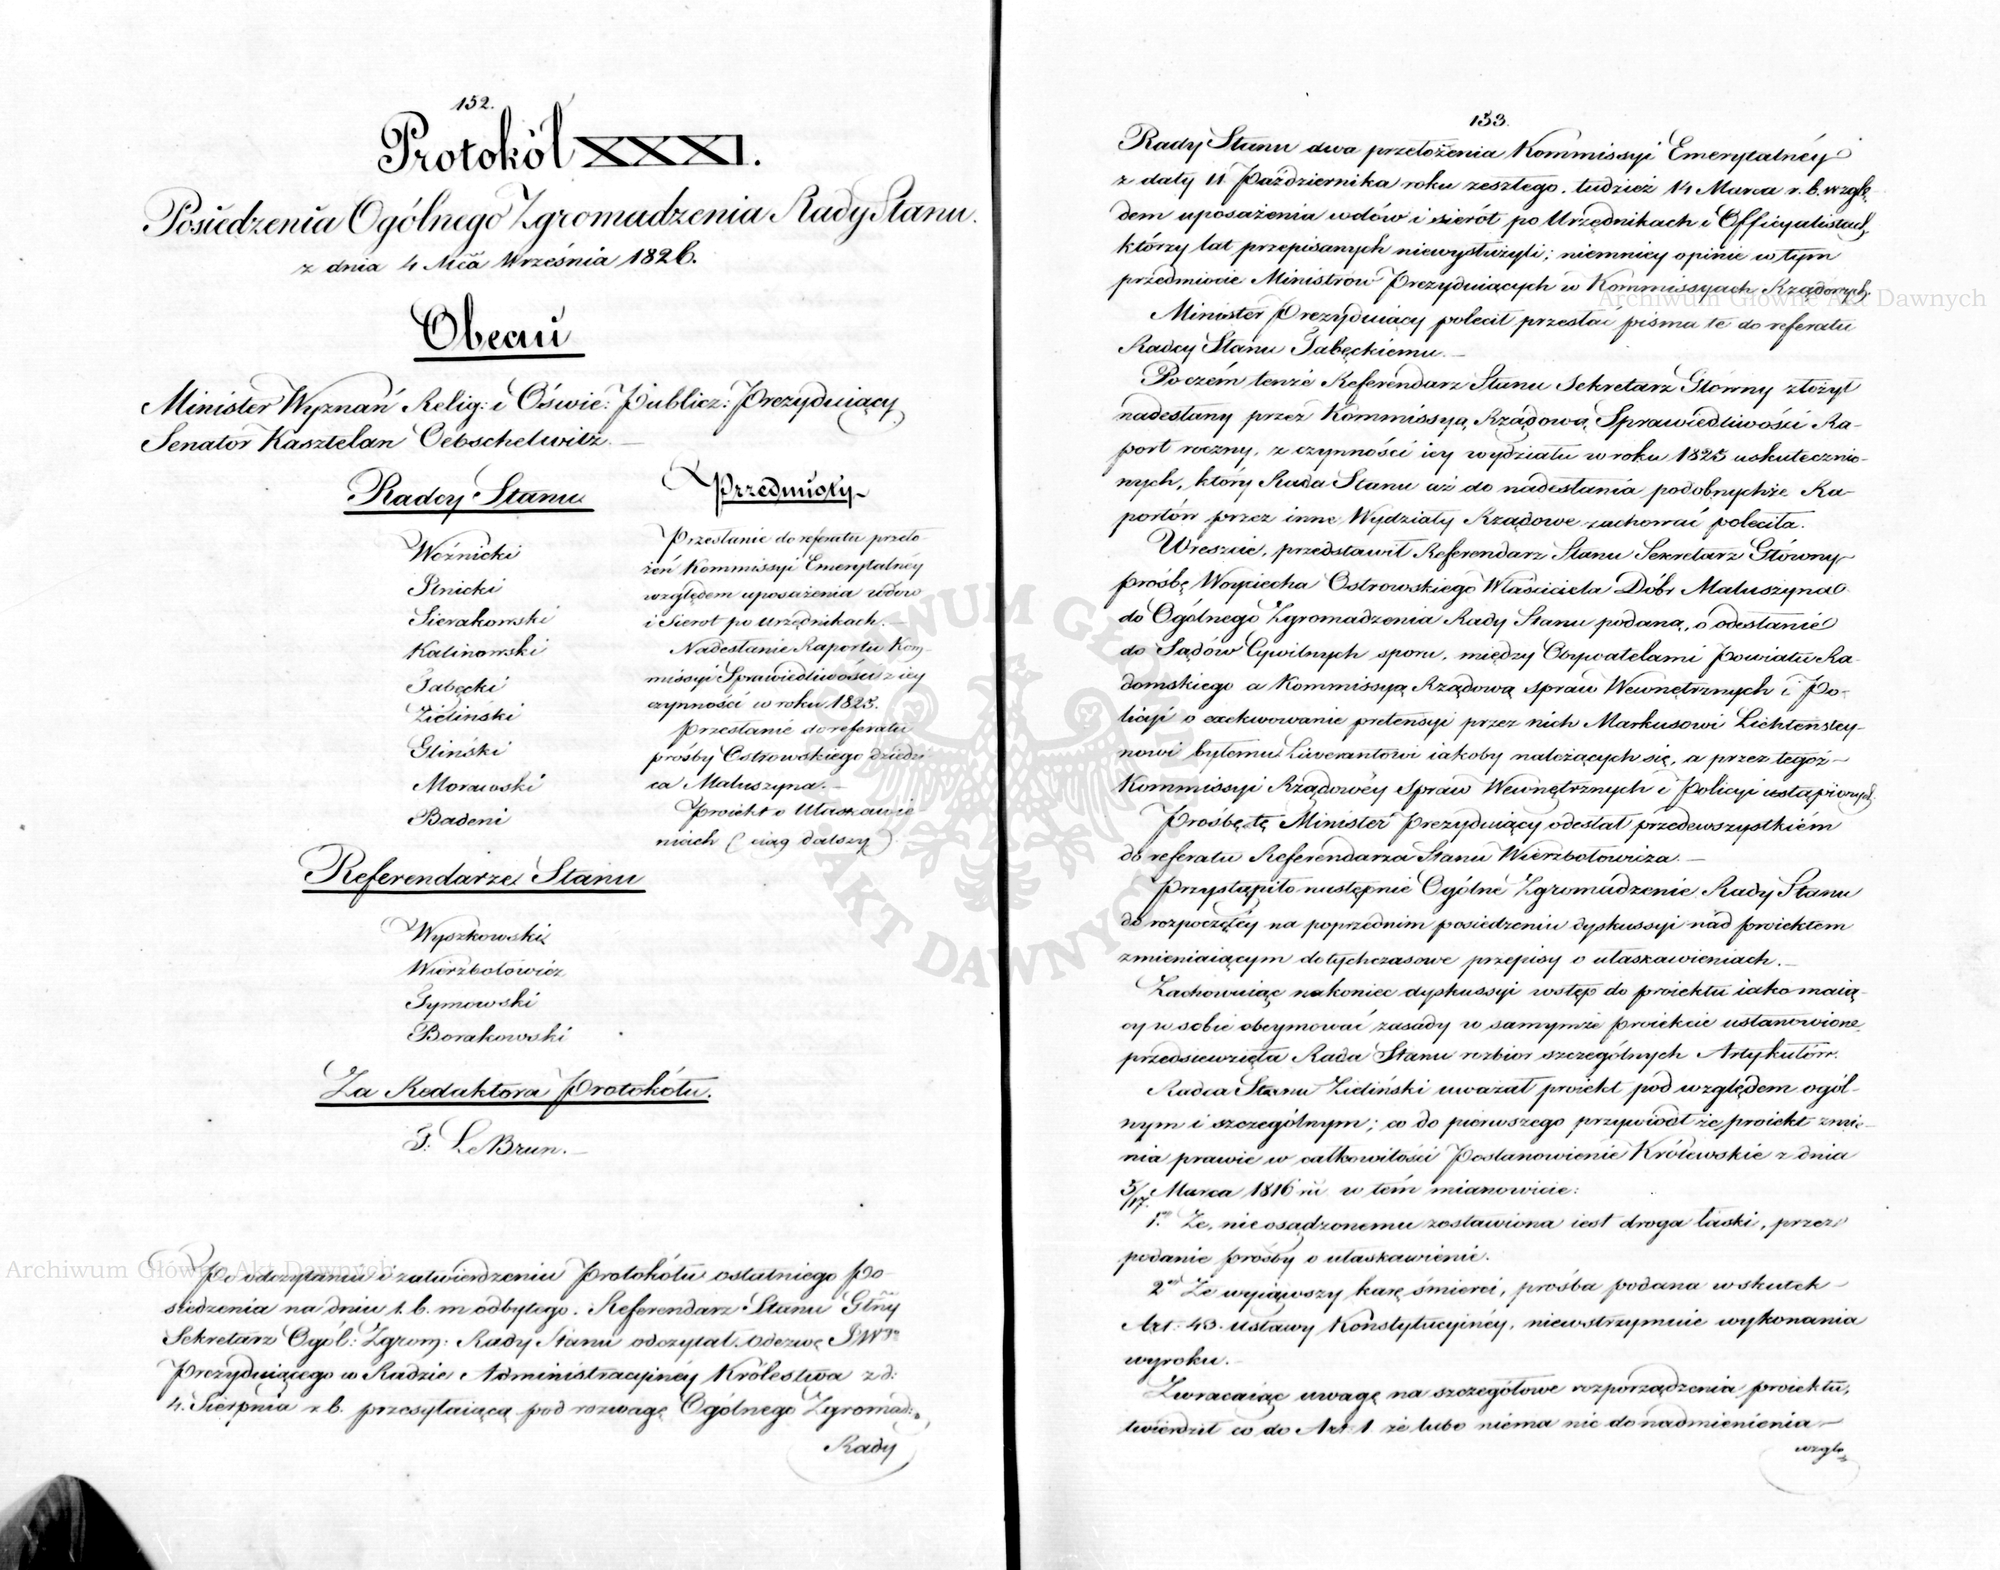 152.
Protokół XXXI.
Posiedzenia Ogólnego Zgromadzenia Rady Stanu.
z dnia 4 Mca Września 1826.
Obecni
Minister Wyznań Relig: i Oświe: Publicz: Prezyduiący
Senator Kasztelan Oebschelwitz. —
Radcy Stanu
Woźnicki
Linicki
Sierakowski
Kalinowski
Tabęcki
Zieliński
Gliński
Morawski
Badeni
Przedmioty
Przesłanie do referatu przeło-
żeń Kommissyi Emerytalnéy
względem uposażenia wdów
i Sierot po Urzędnikach. —
Nadesłanie Raportu Kom-
missyi Sprawiedliwości z iéy
czynności w roku 1825.
Przesłanie do referatu
prośby Ostrowskiego dziedzi-
ca Maluszyna. —
Proiekt o Ułaskawie
niach (ciąg dalszy)
Referendarze Stanu
Wyszkowski
Wierzbołowicz
Tymowski
Borakowski
Za Redaktora Protokółu.
J: Le Brun. —
Po odczytaniu i zatwierdzeniu Protokółu ostatniego Po-
siedzenia na dniu 1. b. m odbytego. Referendarz Stanu Głny
Sekretarz Ogól: Zgrom: Rady Stanu odczytał Odezwę JWgo
Prezyduiącego w Radzie Administracyinéy Królestwa z d:
4. Sierpnia r. b. przesyłaiącą pod rozwagę Ogólnego Zgromad:
Rady
153.
Rady Stanu dwa przełożenia Kommissyi Emerytalnéy
z daty 11 Października roku zeszłego, tudzież 14 Marca r. b. wzglę
dem uposażenia wdów i sierót po Urzędnikach i Officyalistach,
którzy lat przepisanych niewysłużyli; niemniéy opinie w tym
przedmiocie Ministrów Prezyduiących w Kommissyach Rządowych.
Minister Prezyduiący polecił przesłać pisma te do referatu
Radcy Stanu Tabęckiemu. —
Poczém tenże Referendarz Stanu Sekretarz Główny złożył
nadesłany przez Kommissyą Rządową Sprawiedliwości Ra-
port roczny, z czynności iéy wydziału w roku 1825 uskutecznio-
nych, który Rada Stanu aż do nadesłania podobnychże Ra-
portów przez inne Wydziały Rządowe zachować poleciła.
Wreszcie, przedstawił Referendarz Stanu Sekretarz Główny
prośbę Woyciecha Ostrowskiego Właściciela Dóbr Maluszyna
do Ogólnego Zgromadzenia Rady Stanu podaną, o odesłanie
do Sądów Cywilnych sporu, między Obywatelami Powiatu Ra-
domskiego a Kommissyą Rządową Spraw Wewnętrznych i Po-
licyi o exekwowanie pretensyi przez nich Markusowi Lichtensztey-
nowi byłemu Liwerantowi iakoby należących się, a przez tegoż
Kommissyi Rządowéy Spraw Wewnętrznych i Policyi ustąpionych.
Prośbę tę Minister Prezyduiący odesłał przedewszystkiém
do referatu Referendarza Stanu Wierzbołowicza. —
Przystąpiło następnie Ogólne Zgromadzenie Rady Stanu
do rozpoczętéy na poprzednim posiedzeniu dyskussyi nad proiektem
zmieniaiącym dotychczasowe przepisy o ułaskawieniach. —
Zachowuiąc nakoniec dyskussyi wstęp do proiektu iako maią-
cy w sobie obeymować zasady w samymże proiekcie ustanowione,
przedsiewzięła Rada Stanu rozbior szczególnych Artykułów.
Radca Stanu Zieliński uważał proiekt pod względem ogól-
nym i szczególnym; co do pierwszego przywiódł że proiekt zmie-
nia prawie w całkowitości Postanowienie Królewskie z dnia
5/17. Marca 1816 r. w tém mianowicie:
1.o Że, nieosądzonemu zostawiona iest droga łaski, przez
podanie prośby o ułaskawienie.
2.o Że wyiąwszy karę śmierci, prośba podana w skutek
Art: 43. Ustawy Konstytucyinéy, niewstrzymuie wykonania
wyroku. —
Zwracaiąc uwagę na szczegółowe rozporządzenia proiektu,
twierdził co do Art: 1. że lubo niema nic do nadmienienia —
wzglę
Archiwum Główne Akt Dawnych
Archiwum Główne Akt Dawnych
ARCHIWUM GŁÓWNE AKT DAWNYCH